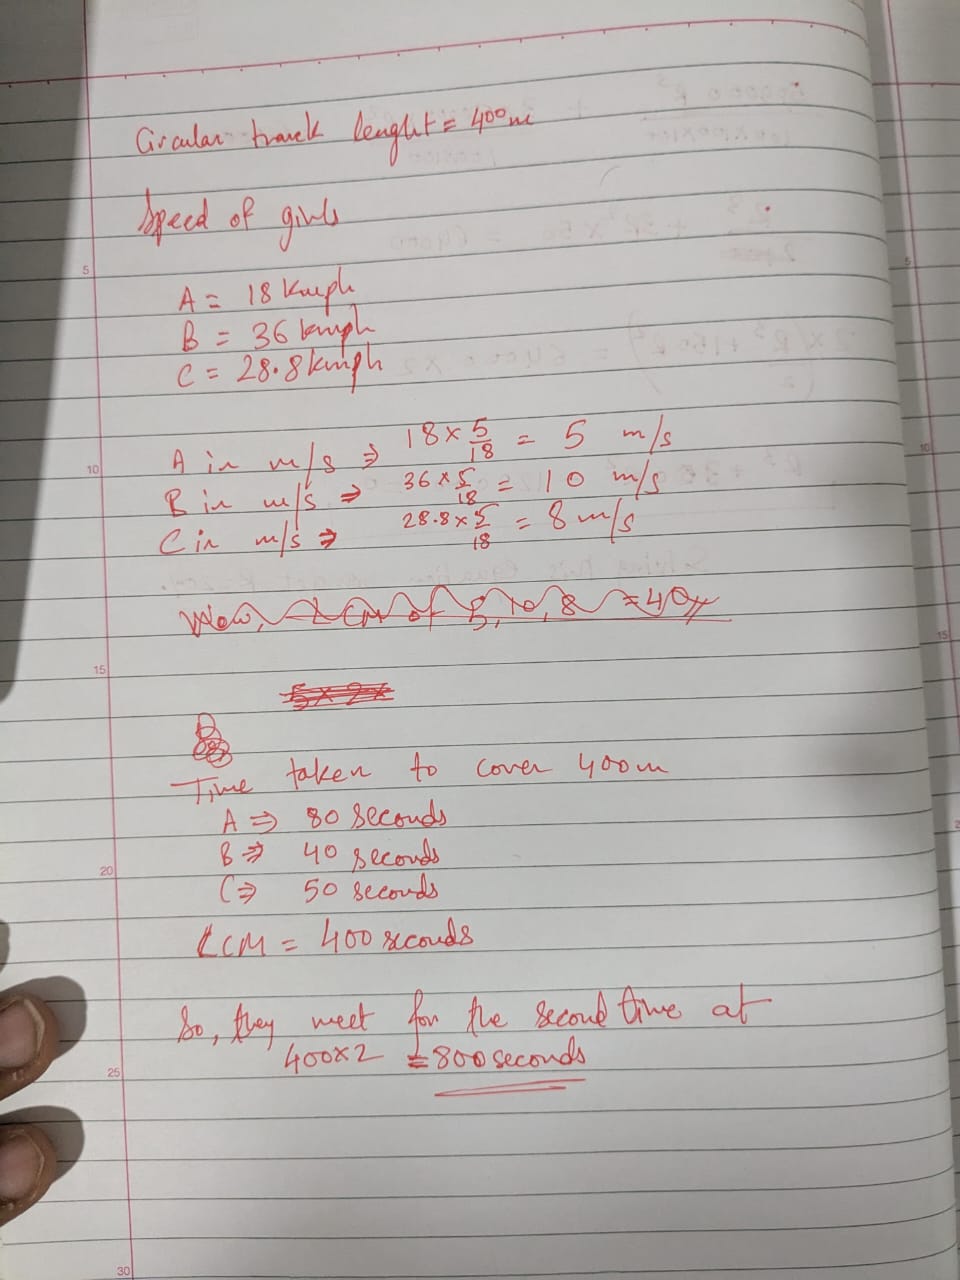 Circular track lenght = 400m
Speed of girls
A = 18 Kmph
B = 36 kmph
C = 28.8 kmph
A in m/s ⇒ 18 × 5/18 = 5 m/s
B in m/s ⇒ 36 × 5/18 = 10 m/s
C in m/s ⇒ 28.8 × 5/18 = 8 m/s
Now, LCM of 5, 10, 8 = 40
5 × 2 ×
Time taken to cover 400m
A ⇒ 80 seconds
B ⇒ 40 seconds
C ⇒ 50 seconds
LCM = 400 seconds
So, they meet for the second time at
400×2 = 800 seconds
5
10
15
20
25
30